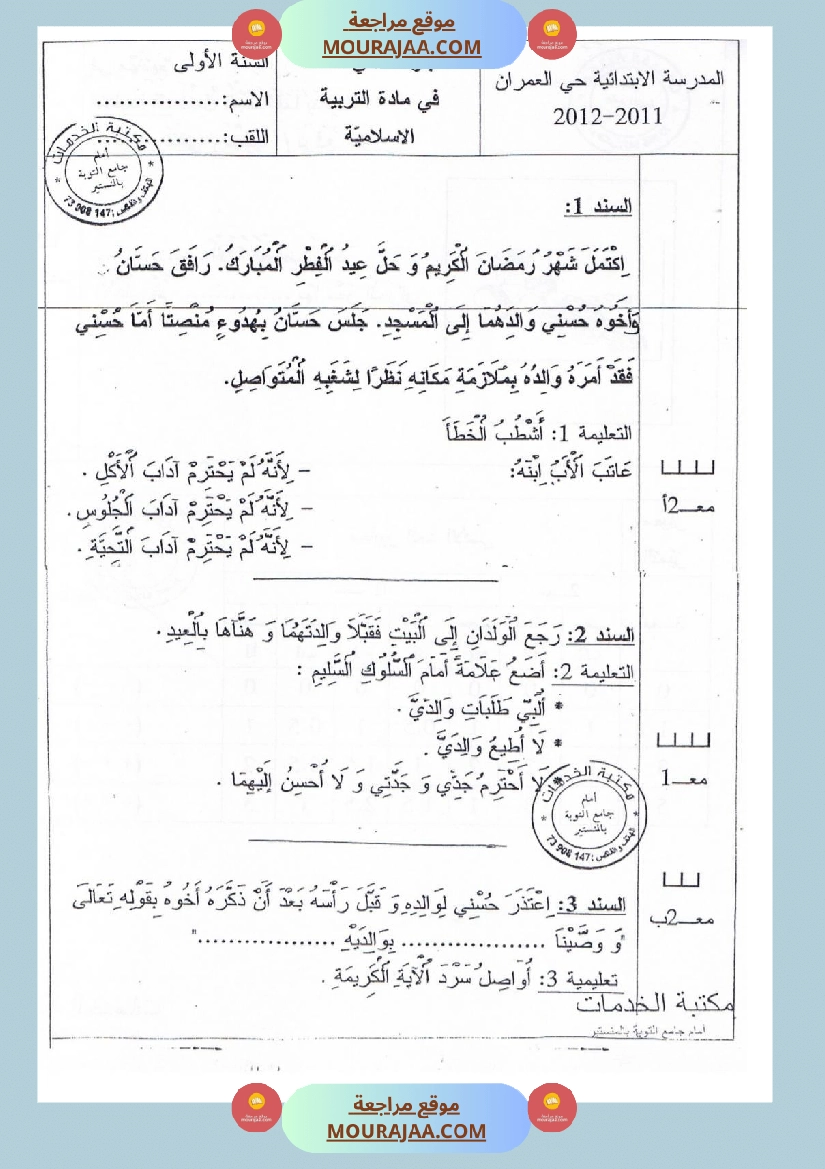 موقع مراجعة
MOURAJAA.COM
المدرسة الابتدائية حي العمران
2011-2012
في مادة التربية
الاسلاميّة
السنة الأولى
الاسم:................
اللقب:................
مكتبة الخدمات
أمام
جامع التوبة
بالمنستير
الهاتف والفاكس: 147 908 73
السند 1:
اِكْتَمَلَ شَهْرُ رَمَضَانَ الْكَرِيمُ وَ حَلَّ عِيدُ الْفِطْرِ الْمُبَارَكُ. رَافَقَ حَسَّانُ
وَأَخُوهُ حُسْنِي وَالِدَهُمَا إِلَى الْمَسْجِدِ. جَلَسَ حَسَّانُ بِهُدُوءٍ مُنْصِتًا أَمَّا حُسْنِي
فَقَدْ أَمَرَهُ وَالِدُهُ بِمُلَازَمَةِ مَكَانِهِ نَظَرًا لِشَغَبِهِ الْمُتَوَاصِلِ.
التعليمة 1: أَشْطُبُ الْخَطَأَ
عَاتَبَ الْأَبُ اِبْنَهُ: – لِأَنَّهُ لَمْ يَحْتَرِمْ آدَابَ الْأَكْلِ .
– لِأَنَّهُ لَمْ يَحْتَرِمْ آدَابَ الْجُلُوسِ .
– لِأَنَّهُ لَمْ يَحْتَرِمْ آدَابَ التَّحِيَّةِ .
معـ2أ
السند 2: رَجَعَ الْوَلَدَانِ إِلَى الْبَيْتِ فَقَبَّلَا وَالِدَتَهُمَا وَ هَنَّآهَا بِالْعِيدِ .
التعليمة 2: أَضَعُ عَلَامَةً أَمَامَ السُّلُوكِ السَّلِيمِ :
* أُلَبِّي طَلَبَاتِ وَالِدَيَّ .
* لَا أُطِيعُ وَالِدَيَّ .
* لَا أَحْتَرِمُ جَدِّي وَ جَدَّتِي وَ لَا أُحْسِنُ إِلَيْهِمَا .
معـ1
مكتبة الخدمات
أمام
جامع التوبة
بالمنستير
الهاتف والفاكس: 147 908 73
السند 3: اِعْتَذَرَ حُسْنِي لِوَالِدِهِ وَ قَبَّلَ رَأْسَهُ بَعْدَ أَنْ ذَكَّرَهُ أَخُوهُ بِقَوْلِهِ تَعَالَى
معـ2ب
"وَ وَصَّيْنَا ................... بِوَالِدَيْهِ .................."
تعليمية 3: أُوَاصِلُ سَرْدَ الْآيَةِ الْكَرِيمَةِ .
مكتبة الخدمات
أمام جامع التوبة بالمنستير
موقع مراجعة
MOURAJAA.COM